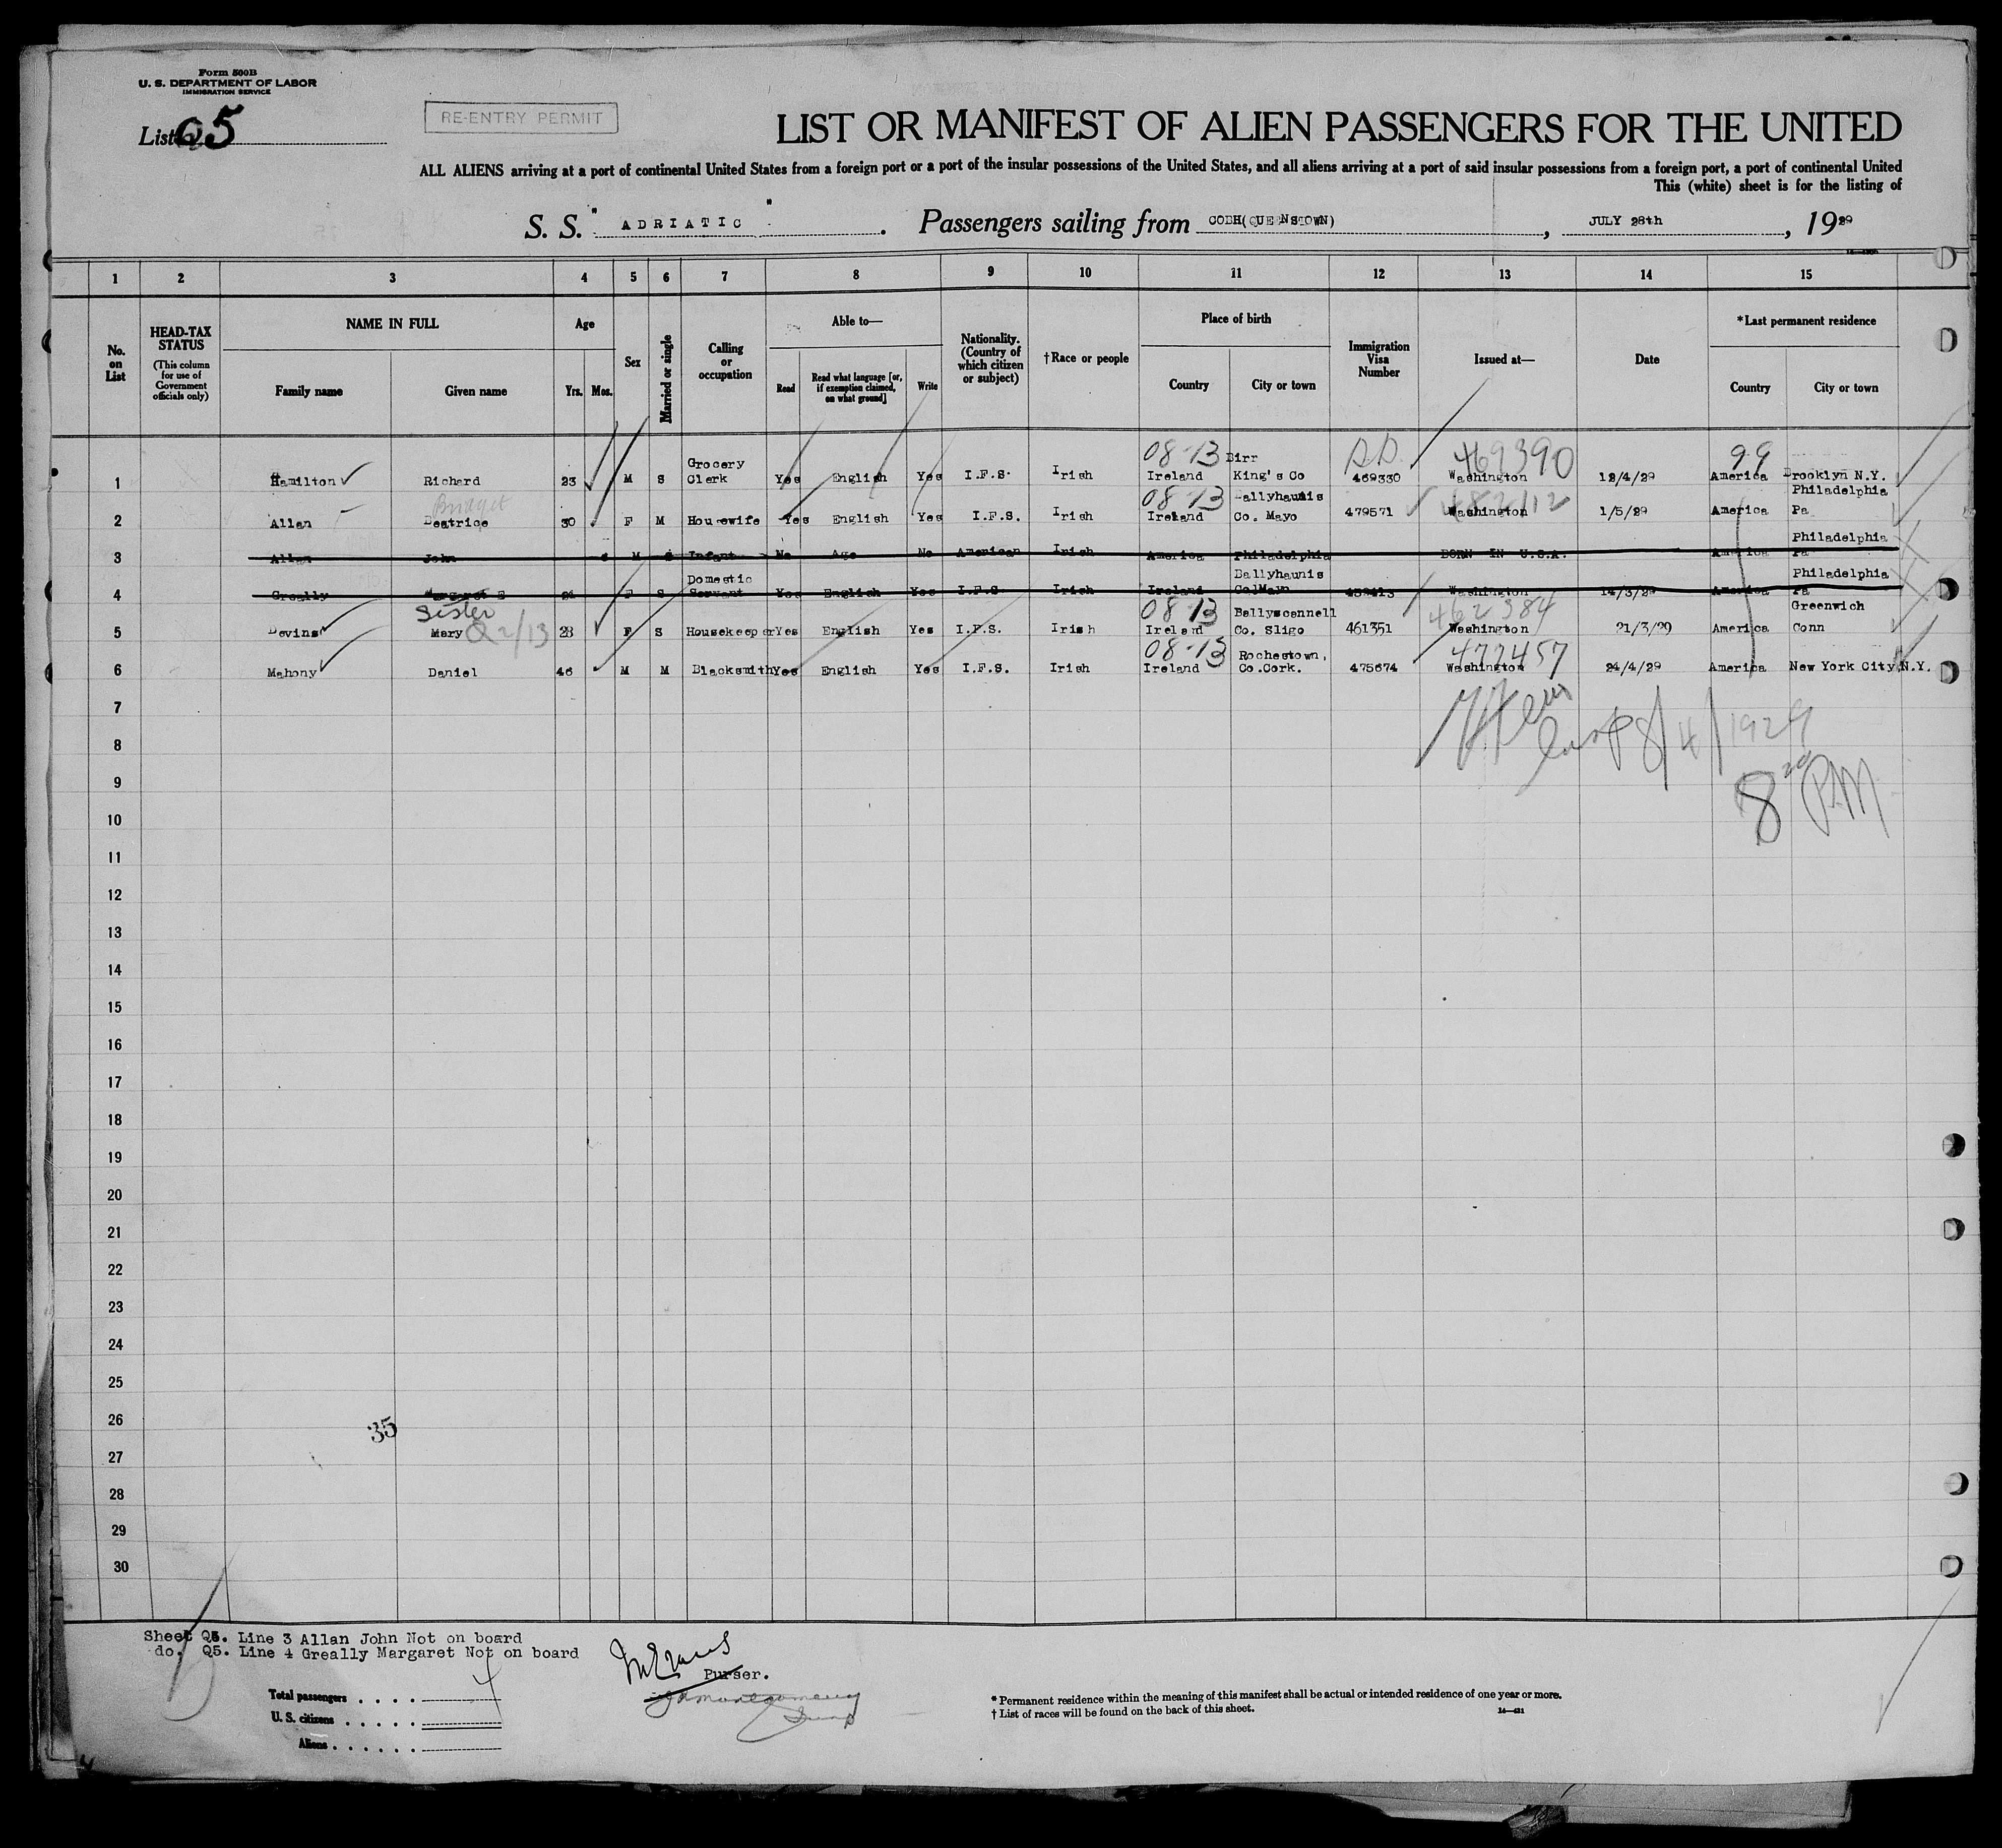 Form 500B
U. S. DEPARTMENT OF LABOR
IMMIGRATION SERVICE
List Q5
RE-ENTRY PERMIT
LIST OR MANIFEST OF ALIEN PASSENGERS FOR THE UNITED
ALL ALIENS arriving at a port of continental United States from a foreign port or a port of the insular possessions of the United States, and all aliens arriving at a port of said insular possessions from a foreign port, a port of continental United
This (white) sheet is for the listing of
S. S. "ADRIATIC". Passengers sailing from COBH(QUEENSTOWN), JULY 28th, 1929
1 2 3 4 5 6 7 8 9 10 11 12 13 14 15
No. on List
HEAD-TAX STATUS (This column for use of Government officials only)
NAME IN FULL Family name Given name
Age Yrs. Mos.
Sex
Married or single
Calling or occupation
Able to— Read Read what language [or, if exemption claimed, on what ground] Write
Nationality. (Country of which citizen or subject)
†Race or people
Place of birth Country City or town
Immigration Visa Number
Issued at—
Date
*Last permanent residence Country City or town
08-13 469390 99
1 Hamilton Richard 23 M S Grocery Clerk Yes English Yes I.F.S. Irish Ireland Birr King's Co 469330 Washington 12/4/29 America Brooklyn N.Y.
Bridget 08-13
2 Allan Beatrice 30 F M Housewife Yes English Yes I.F.S. Irish Ireland Ballyhaunis Co. Mayo 479571 Washington 1/5/29 America Philadelphia Pa
3 Allan John M S Infant No Age No American Irish America Philadelphia BORN IN U.S.A. America Philadelphia Pa
4 Greally Margaret F S Domestic Servant Yes English Yes I.F.S. Irish Ireland Ballyhaunis Washington 14/3/29 America Philadelphia Pa
Sister 08-13 462384
5 Devins Mary Q2/13 28 F S Housekeeper Yes English Yes I.F.S. Irish Ireland Ballyscannell Co. Sligo 461351 Washington 21/3/29 America Greenwich Conn
08-13 477457
6 Mahony Daniel 46 M M Blacksmith Yes English Yes I.F.S. Irish Ireland Rochestown, Co.Cork. 475674 Washington 24/4/29 America New York City,N.Y.
7
8/4/1929
8
8 20 PM
9
10
11
12
13
14
15
16
17
18
19
20
21
22
23
24
25
26
35
27
28
29
30
Sheet Q5. Line 3 Allan John Not on board
do. Q5. Line 4 Greally Margaret Not on board
Purser.
Total passengers . . . . 4
U. S. citizens . . . . .
Aliens . . . . . .
* Permanent residence within the meaning of this manifest shall be actual or intended residence of one year or more.
† List of races will be found on the back of this sheet.
14—421